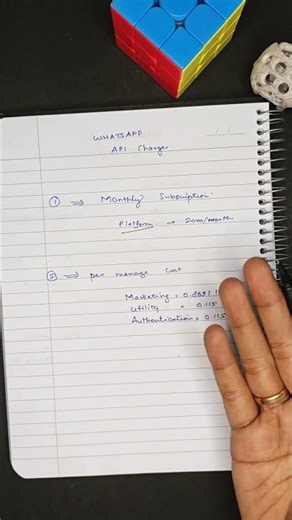 WHATSAPP
API Charges
① ⇒ Monthly Subscription
Platform → 2000/month
② ⇒ per message Cost
Marketing = 0.868
Utility = 0.115
Authentication = 0.115